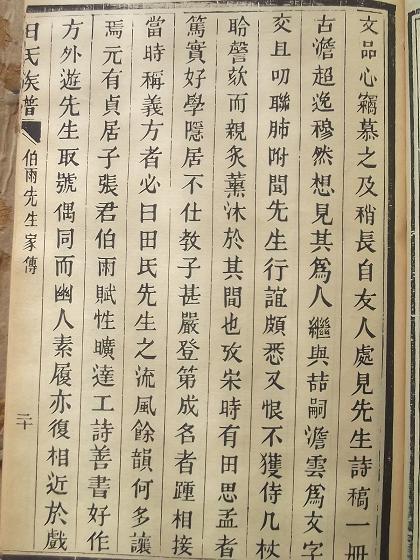 文品心竊慕之及稍長自友人處見先生詩稿一冊
古澹超逸穆然想見其爲人繼與喆嗣澹雲爲文字
交且叨聯肺附聞先生行誼頗悉又恨不獲侍几杖
聆謦欬而親炙薰沐於其間也攷宋時有田思孟者
篤實好學隱居不仕教子甚嚴登第成名者踵相接
當時稱義方者必曰田氏先生之流風餘韻何多讓
焉元有貞居子張君伯雨賦性曠達工詩善書好作
方外遊先生取號偶同而幽人素履亦復相近於戲
田氏族譜
伯雨先生家傳
二十